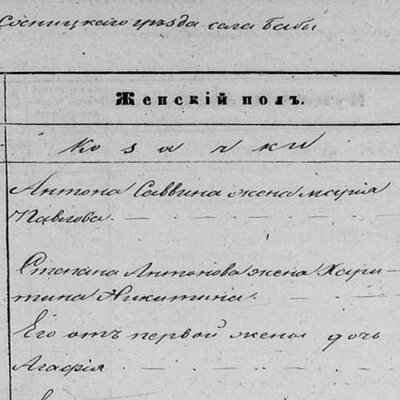 Сосницкаго уѣзда села Бабы
Женскій полъ.
Козачки
Антона Саввина жена Марія
Павлова.
Степана Антонова жена Хари-
тина Никитина.
Его отъ первой жены дочь
Агафія